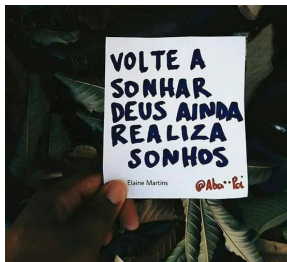 VOLTE A
SONHAR
DEUS AINDA
REALIZA
SONHOS
Elaine Martins
@Aba••Pai